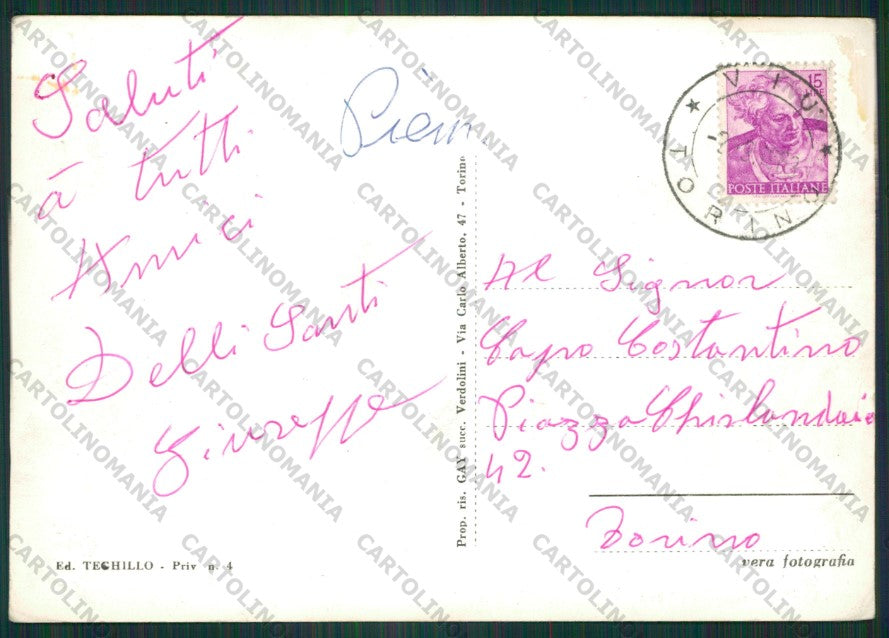 Saluti
à tutti
Amici
Delli Santi
Giuseppe
Piem
Prop. ris. GAY succ. Verdolini - Via Carlo Alberto, 47 - Torino
VIÙ
TORINO
15
POSTE ITALIANE
Al Signor
Capo Costantino
Piazza Ghirlandaio
42.
Torino
Ed. TECHILLO - Priv n. 4
vera fotografia
CARTOLINOMANIA